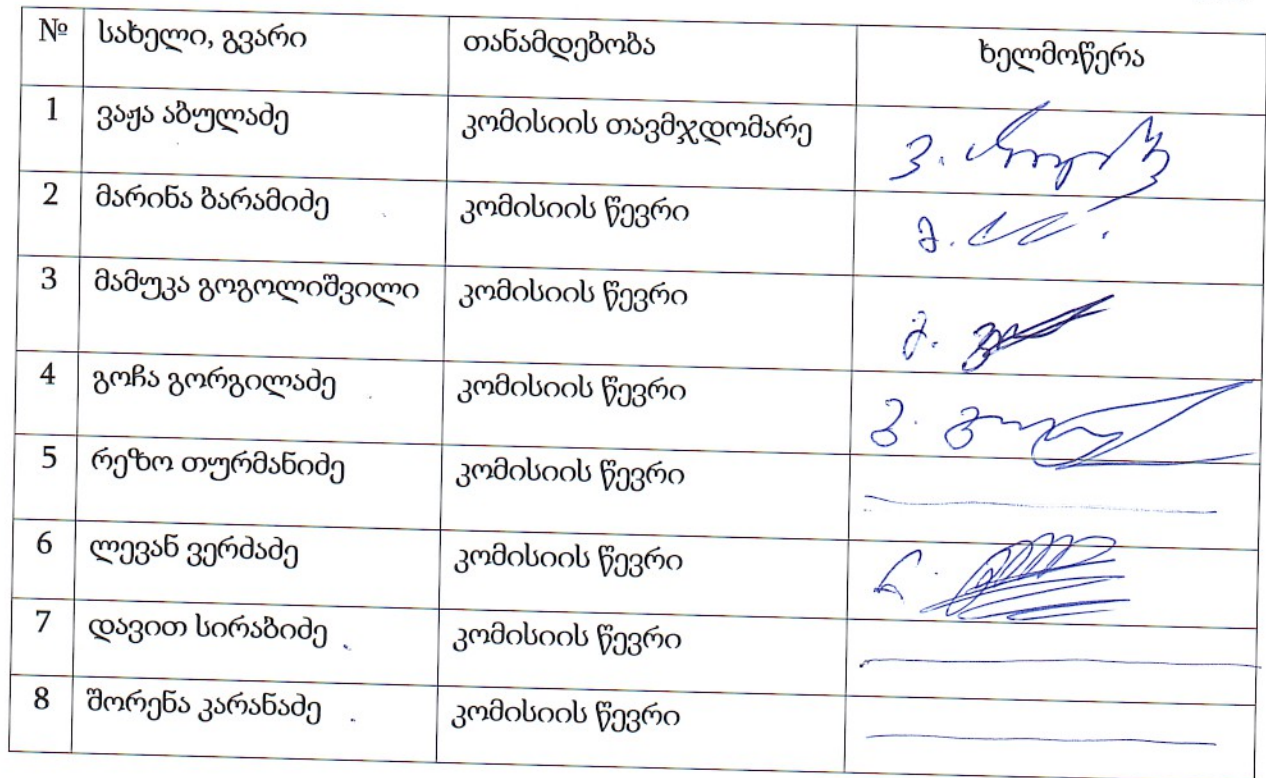 № სახელი, გვარი თანამდებობა ხელმოწერა
1 ვაჟა აბულაძე კომისიის თავმჯდომარე
2 მარინა ბარამიძე კომისიის წევრი
3 მამუკა გოგოლიშვილი კომისიის წევრი
4 გოჩა გორგილაძე კომისიის წევრი
5 რეზო თურმანიძე კომისიის წევრი
6 ლევან ვერძაძე კომისიის წევრი
7 დავით სირაბიძე კომისიის წევრი
8 შორენა კარანაძე კომისიის წევრი